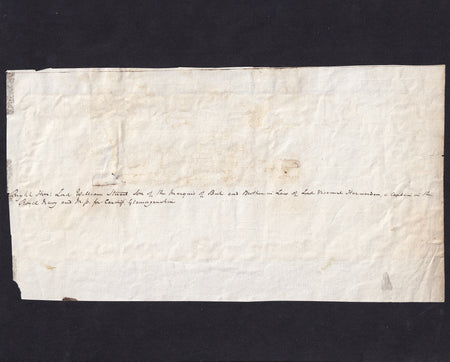 Right Hon: Lord William Stuart Son of the Marquis of Bute and Brother in Law of Lord Viscount Hawarden, a Captain in the
Royal Navy and M.p. for Cardiff Glamorganshire